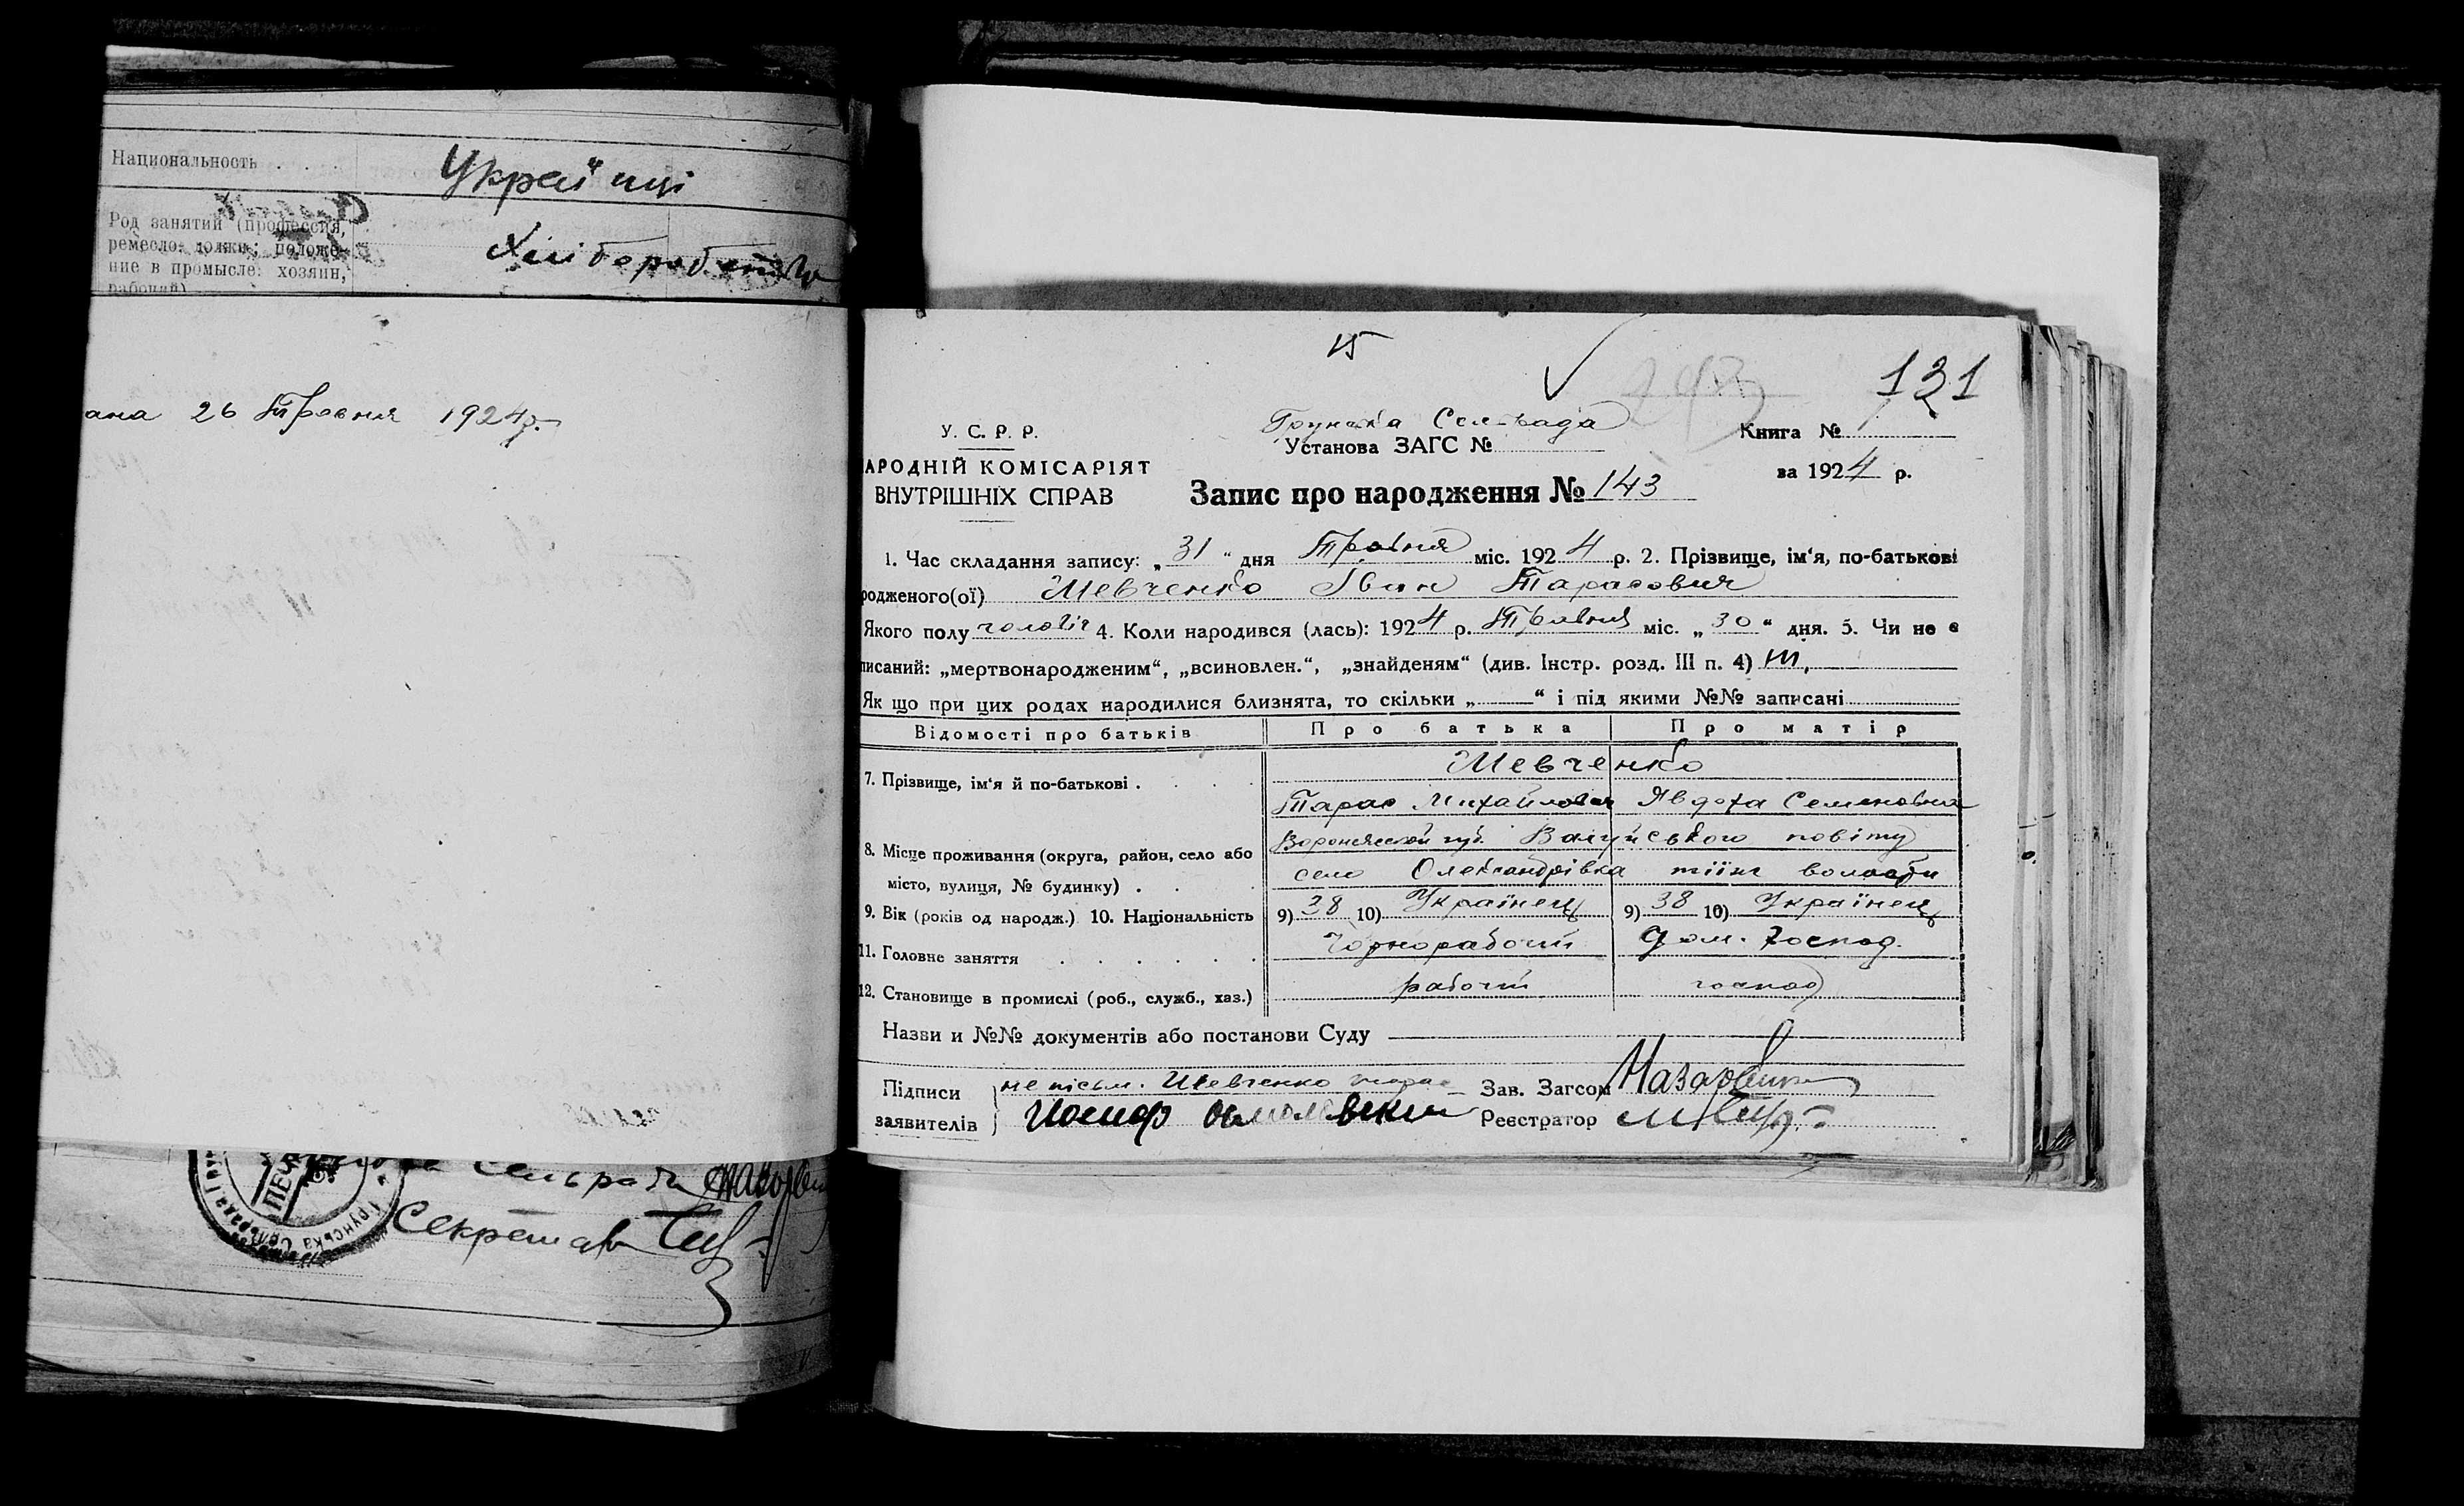 Национальность . . .
Українці
Род занятий (профессия,
ремесло, должн; положе-
ние в промысле: хозяин,
рабочий)
Хліборобство
ана 26 Травня 1924 р.
Сельради
Секретар
Грунська Сільрада
15
131
Грунська Сельрада
У. С. Р. Р.
Установа ЗАГС №
Книга №
АРОДНІЙ КОМІСАРІЯТ
ВНУТРІШНІХ СПРАВ
за 1924 р.
Запис про народження № 143
1. Час складання запису: „31“ дня Травня міс. 1924 р. 2. Прізвище, ім‘я, по-батькові
родженого(ої) Шевченко Іван Тарасович
Якого полу чоловіч 4. Коли народився (лась): 1924 р. Травня міс. „30“ дня. 5. Чи не є
писаний: „мертвонародженим“, „всиновлен.“, „знайденям“ (див. Інстр. розд. III п. 4)
Як що при цих родах народилися близнята, то скільки „—“ і під якими №№ записані
Відомості про батьків Про батька Про матір
7. Прізвище, ім‘я й по-батькові . . . . Шевченко
Тарас Михайлович Явдоха Семеновна
Воронежской губ. Валуйського повіту
8. Місце проживання (округа, район, село або
місто, вулиця, № будинку) . . . село Олександрівка тіїж волости
9. Вік (років од народж.) 10. Національність 9) 38 10) Українец 9) 38 10) Українец
11. Головне заняття . . . . . . Чорнорабочий Дом. господ.
12. Становище в промислі (роб., служб., хаз.) рабочий господ
Назви и №№ документів або постанови Суду
Підписи
заявителів
не письм. Шевченко Тарас
Зав. Загсом
Реєстратор